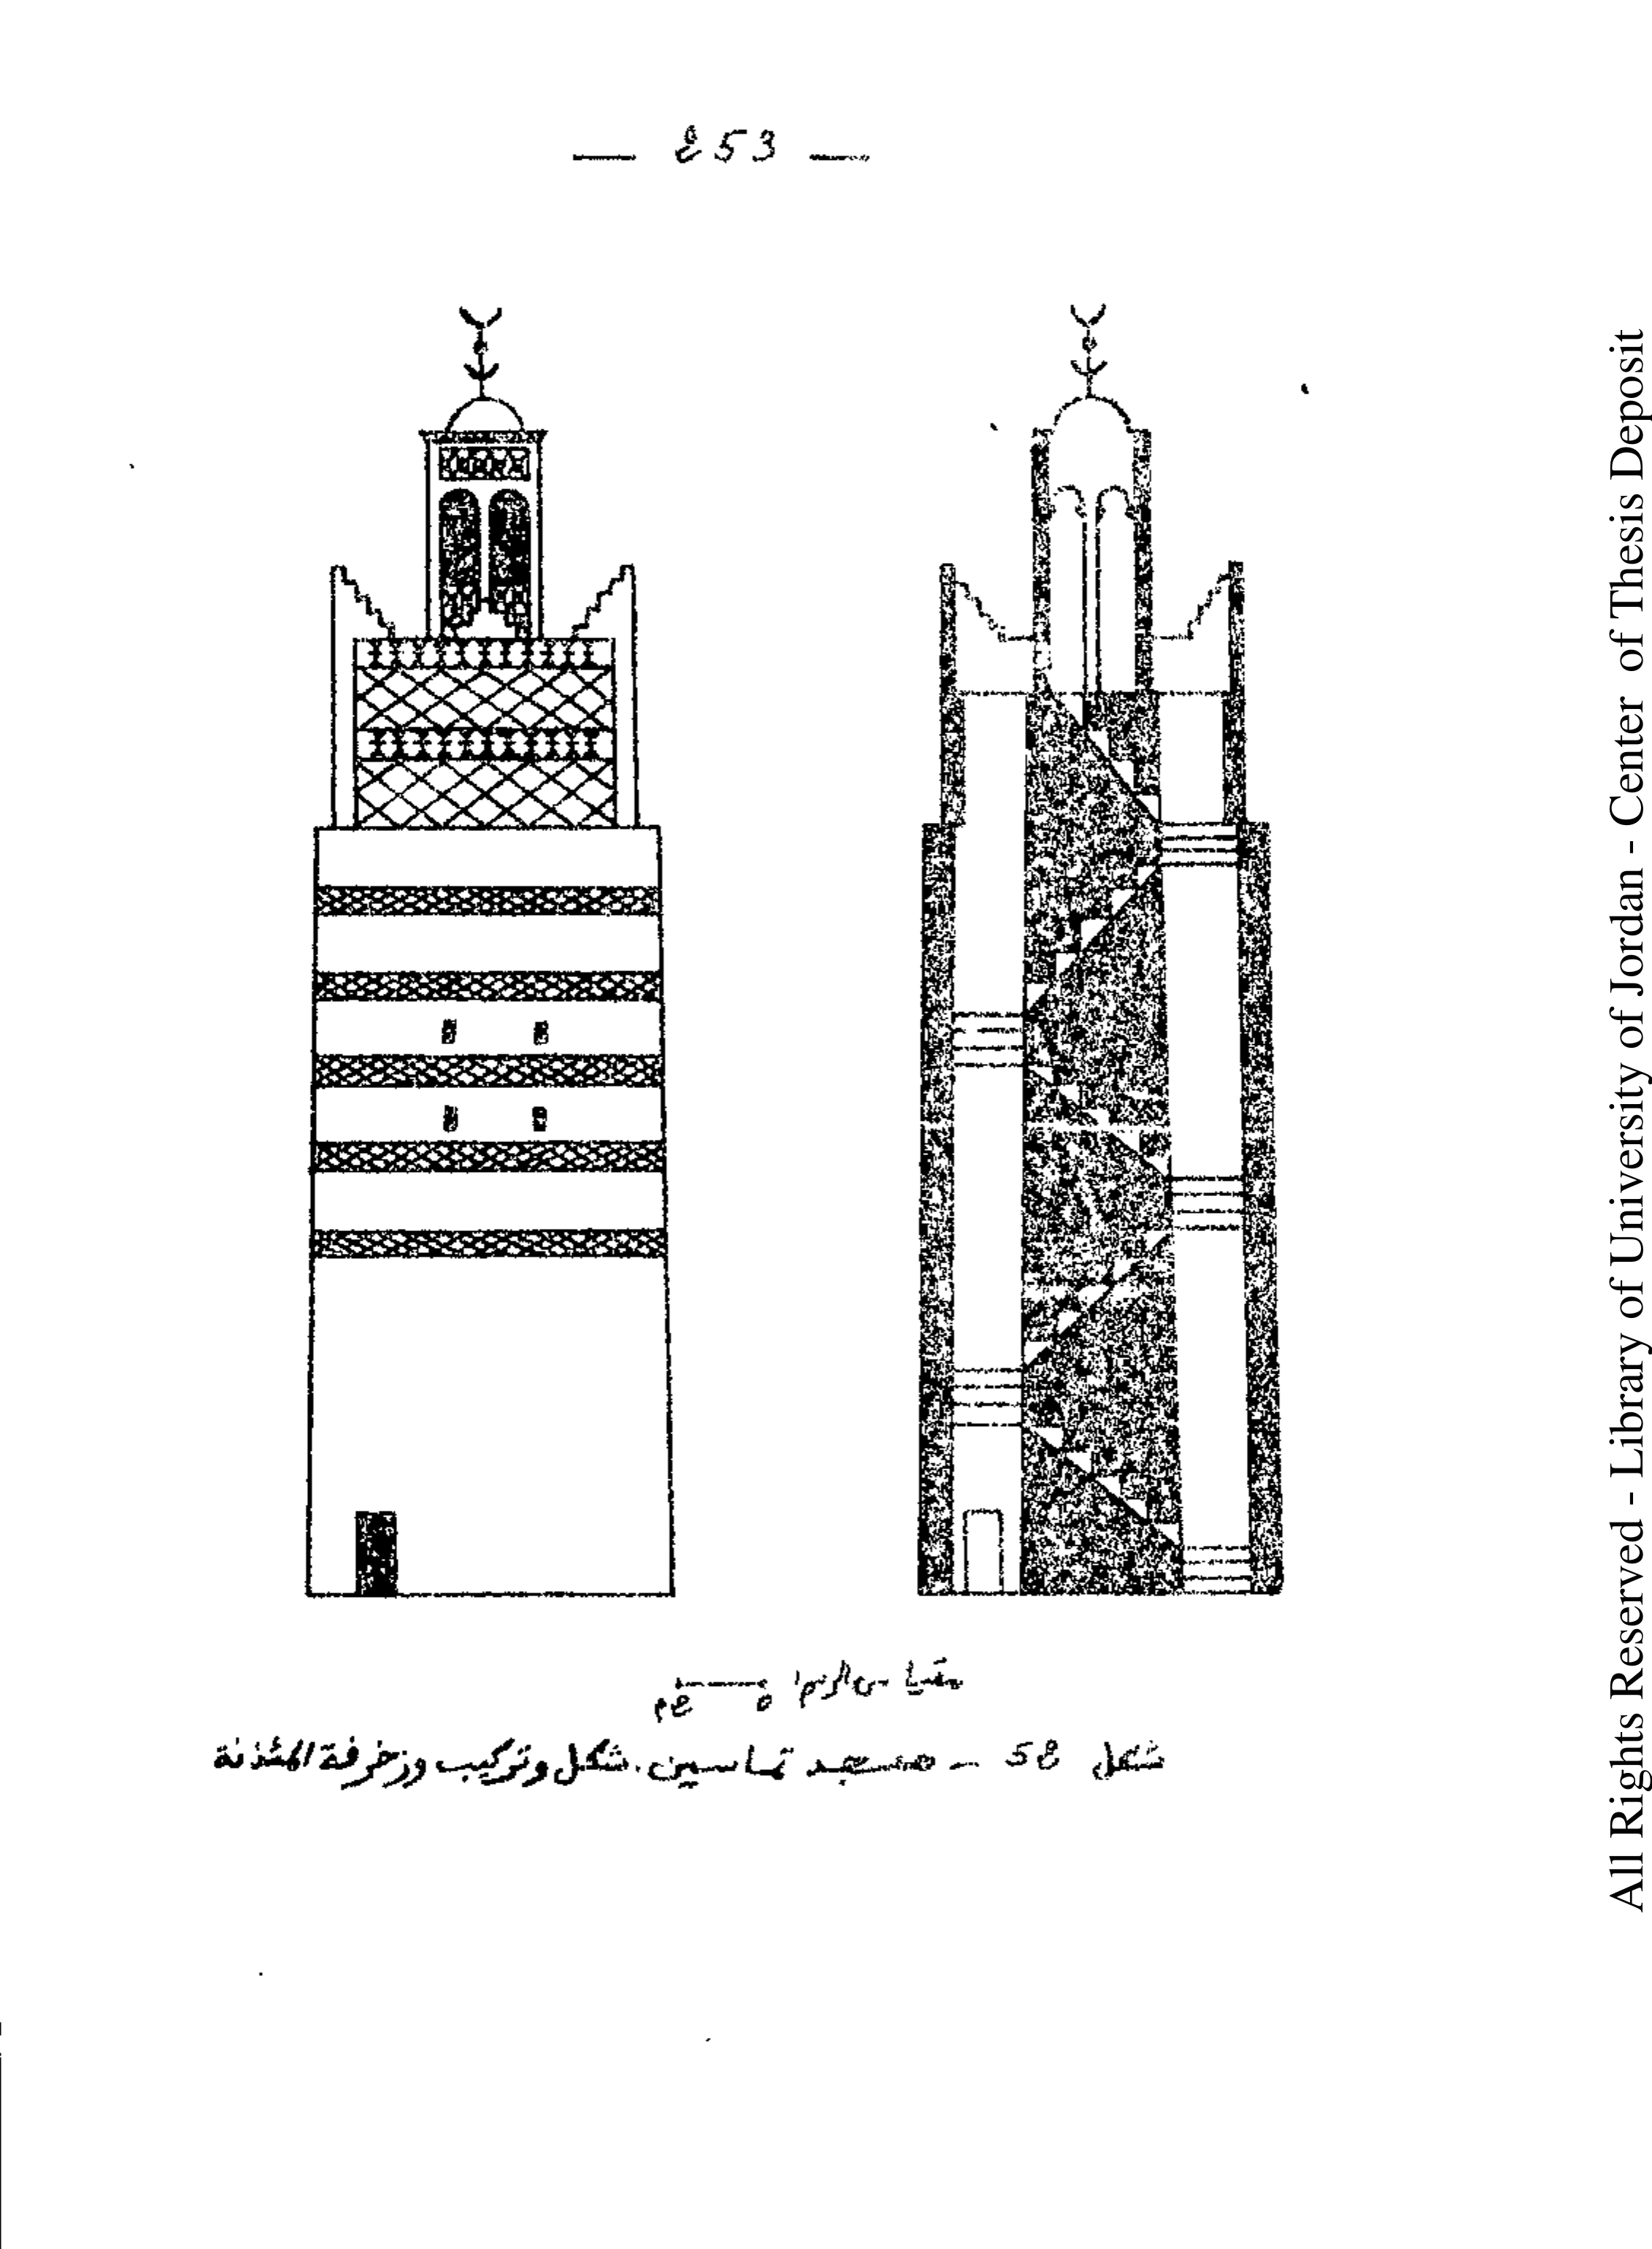 — 253 —
مقياس الرسم 0 2م
شكل 58 – مسجد تماسين. شكل وتركيب وزخرفة المئذنة
All Rights Reserved - Library of University of Jordan - Center of Thesis Deposit